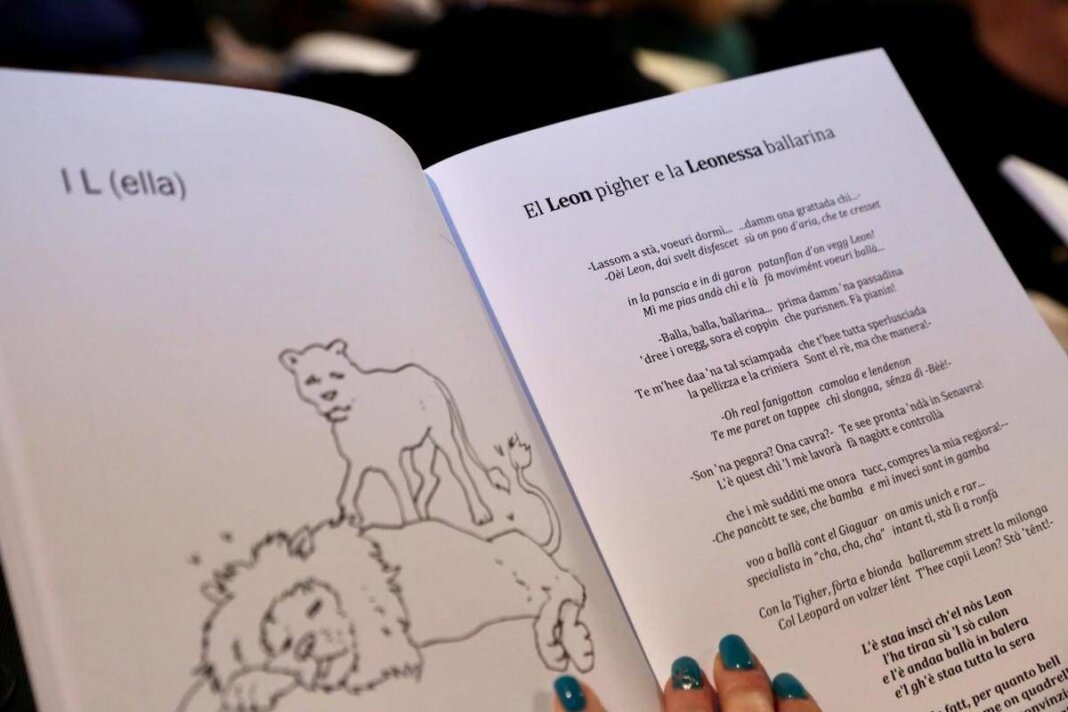 I L (ella)
El Leon pigher e la Leonessa ballarina
-Lassom a stà, voeuri dormì... ...damm ona grattada chì...-
-Oèi Leon, dai svelt disfescet sù on poo d'aria, che te cresset
in la panscia e in di garon patanflan d'on vegg Leon!
Mì me pias andà chì e là fà movimént voeuri ballà...
-Balla, balla, ballarina... prima damm 'na passadina
'dree i oregg, sora el coppin che purisnen. Fà pianin!
Te m'hee daa 'na tal sciampada che t'hee tutta sperlusciada
la pellizza e la criniera Sont el rè, ma che manera!-
-Oh real fanigotton camolaa e lendenon
Te me paret on tappee chì slongaa, sénza dì -Bèè!-
-Son 'na pegora? Ona cavra?- Te see pronta 'ndà in Senavra!
L'è quest chì 'l mè lavorà fà nagòtt e controllà
che i mè sudditi me onora tucc, compres la mia regiora!--
-Che pancòtt te see, che bamba e mi inveci sont in gamba
voo a ballà cont el Giaguar on amis unich e rar...
specialista in "cha, cha, cha" intant tì, stà lì a ronfà
Con la Tigher, fòrta e bionda ballaremm strett la milonga
Col Leopard on valzer lént T'hee capii Leon? Stà 'tént!-
L'è staa inscì ch'el nòs Leon
l'ha tiraa sù 'l sò culon
e l'è andaa ballà in balera
e'l gh'è staa tutta la sera
fatt, per quanto bell
me on quadrell